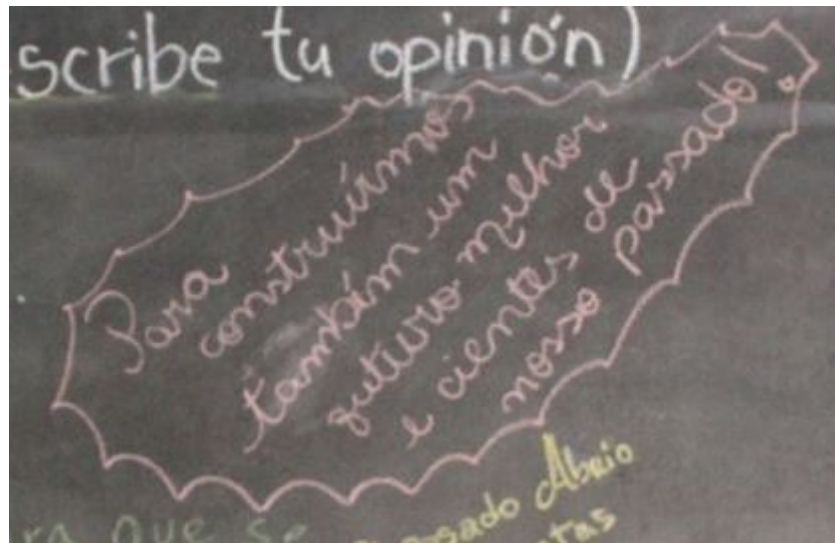 scribe tu opinión)
Para
construírmos
também um
futuro melhor
e cientes de
nosso passado!
ra que se
Abrio